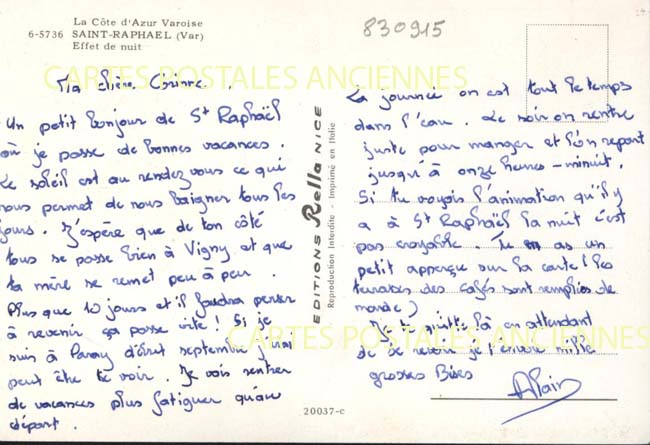 La Côte d'Azur Varoise
6-5736 SAINT-RAPHAEL (Var)
Effet de nuit
830915
CARTES POSTALES ANCIENNES
Ma chère Corinne.
Un petit bonjour de St Raphaël
où je passe de bonnes vacances.
Le soleil est au rendez vous ce qui
nous permet de nous baigner tous les
jours. J'espère que de ton côté
tous se passe bien à Vigny et que
ta mère se remet peu à peu.
Plus que 10 jours et il faudra penser
à revenir ça passe vite! Si je
suis à Paray début septembre j'irai
peut être te voir. Je vais rentrer
de vacances plus fatiguer qu'au
départ.
EDITIONS Rella NICE
Reproduction Interdite - Imprimé en Italie
20037-c
La journée on est tout le temps
dans l'eau. Le soir on rentre
juste pour manger et l'on repart
jusqu'à onze heures-minuit.
Si tu voyais l'animation qu'il y
a à St Raphaël la nuit c'est
pas croyable. Tu as un
petit aperçue sur la carte! (les
terrasses des cafés sont remplies de
monde)
Je te quitte là en attendant
de te revoir je t'envoie mille
grosses Bises
Alain
CARTES POSTALES ANCIENNES